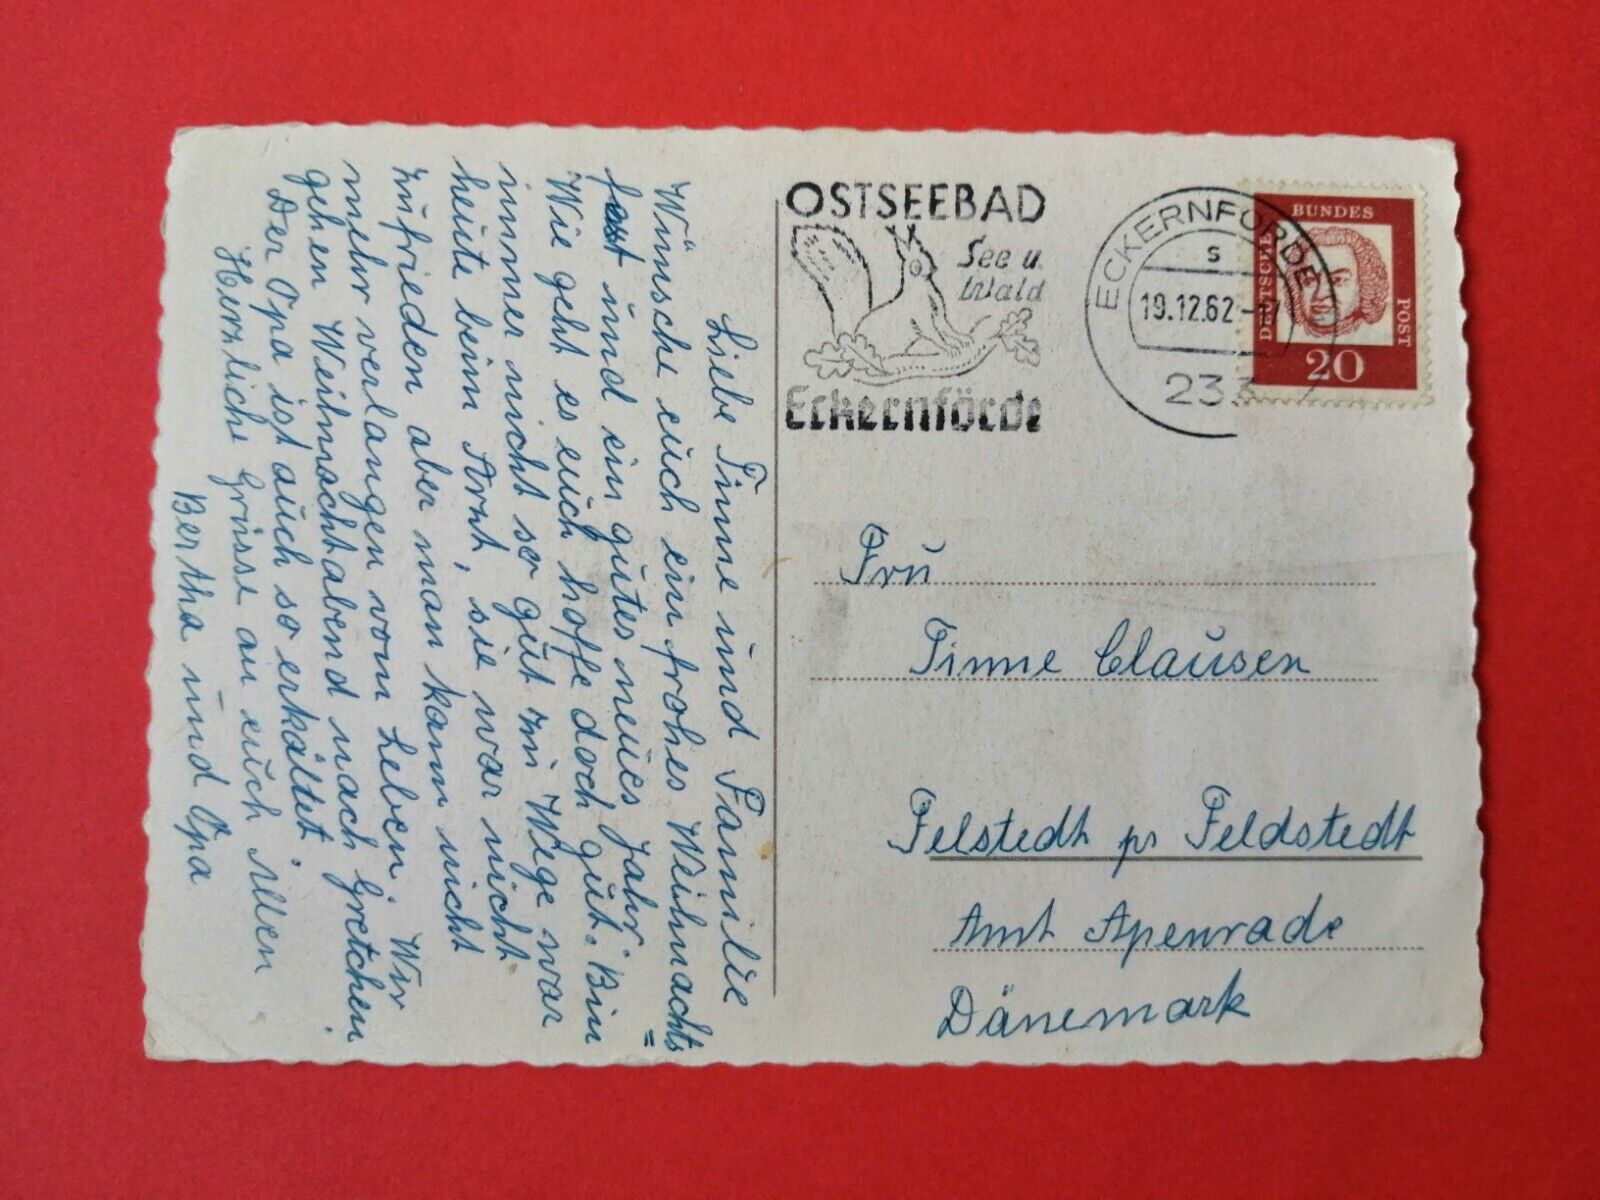 Liebe Tinne und Familie
Wünsche euch ein frohes Weihnachts=
fest und ein gutes neues Jahr.
Wie geht es euch hoffe doch gut. Bin
immer nicht so gut im Wege war
heute beim Arnt, sie war nicht
zufrieden aber man kann nicht
mehr verlangen vom Leben. Wir
gehen Weihnachtabend nach Gretchen.
Der Opa ist auch so erkältet.
Herzliche Grüsse an euch Allen
Bertha und Opa
OSTSEEBAD
See u.
Wald
Eckernförde
ECKERNFÖRDE
s
19.12.62
233
DEUTSCHE BUNDES POST
20
Fru
Tinne Clausen
Felstedt pr Feldstedt
Amt Apenrade
Dänemark